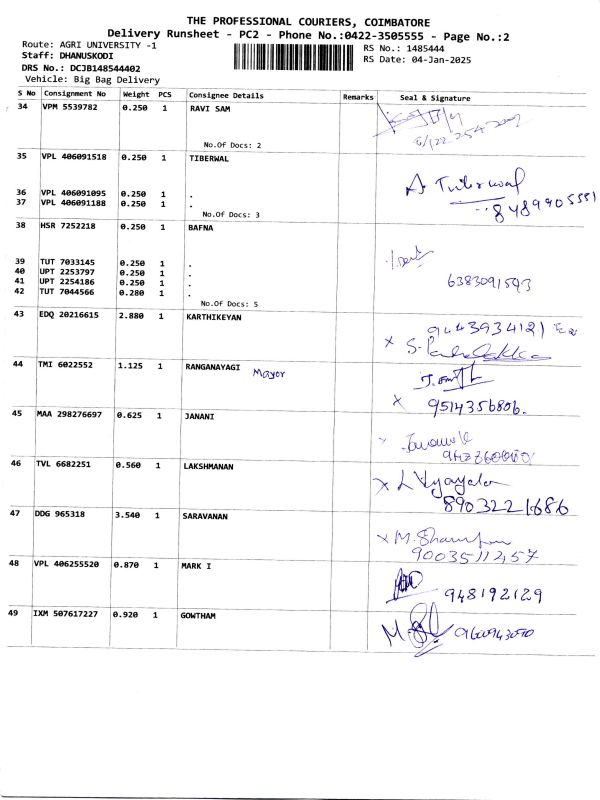 THE PROFESSIONAL COURIERS, COIMBATORE
Delivery Runsheet - PC2 - Phone No.:0422-3505555 - Page No.:2
Route: AGRI UNIVERSITY -1
RS No.: 1485444
Staff: DHANUSKODI
RS Date: 04-Jan-2025
DRS No.: DCJB148544402
Vehicle: Big Bag Delivery
S No Consignment No Weight PCS Consignee Details Remarks Seal & Signature
34 VPM 5539782 0.250 1 RAVI SAM
No.Of Docs: 2
35 VPL 406091518 0.250 1 TIBERWAL
A. Tiberwal
36 VPL 406091095 0.250 1 .
37 VPL 406091188 0.250 1 .
8489905551
No.Of Docs: 3
38 HSR 7252218 0.250 1 BAFNA
39 TUT 7033145 0.250 1 .
40 UPT 2253797 0.250 1 .
41 UPT 2254186 0.250 1 .
6383091593
42 TUT 7044566 0.280 1 .
No.Of Docs: 5
43 EDQ 20216615 2.880 1 KARTHIKEYAN
9443934121
x S.
44 TMI 6022552 1.125 1 RANGANAYAGI
Mayor
x 9514356806.
45 MAA 298276697 0.625 1 JANANI
46 TVL 6682251 0.560 1 LAKSHMANAN
x L
8903221686
47 DDG 965318 3.540 1 SARAVANAN
x M.
9003511257
48 VPL 406255520 0.870 1 MARK I
948192129
49 IXM 507617227 0.920 1 GOWTHAM